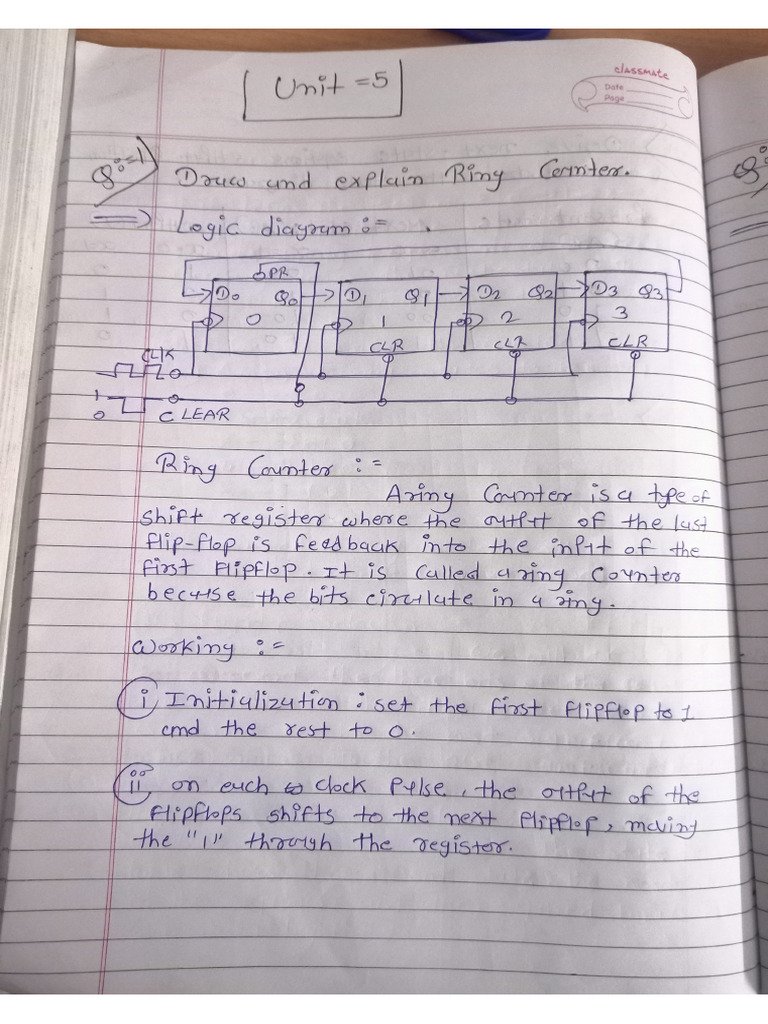 Unit = 5
classmate
Date
Page
Q:=1) Draw and explain Ring Counter.
=> Logic diagram :=
PR
D0 Q0 D1 Q1 D2 Q2 D3 Q3
0 1 2 3
CLR CLR CLR
CLK
1
0
CLEAR
Ring Counter :=
A ring Counter is a type of
shift register where the output of the last
flip-flop is feedback into the input of the
first flipflop. It is called a ring counter
because the bits circulate in a ring.
Working :=
i Initialization : set the first flipflop to 1
and the rest to 0.
ii on each clock pulse, the output of the
flipflops shifts to the next flipflop, moving
the "1" through the register.